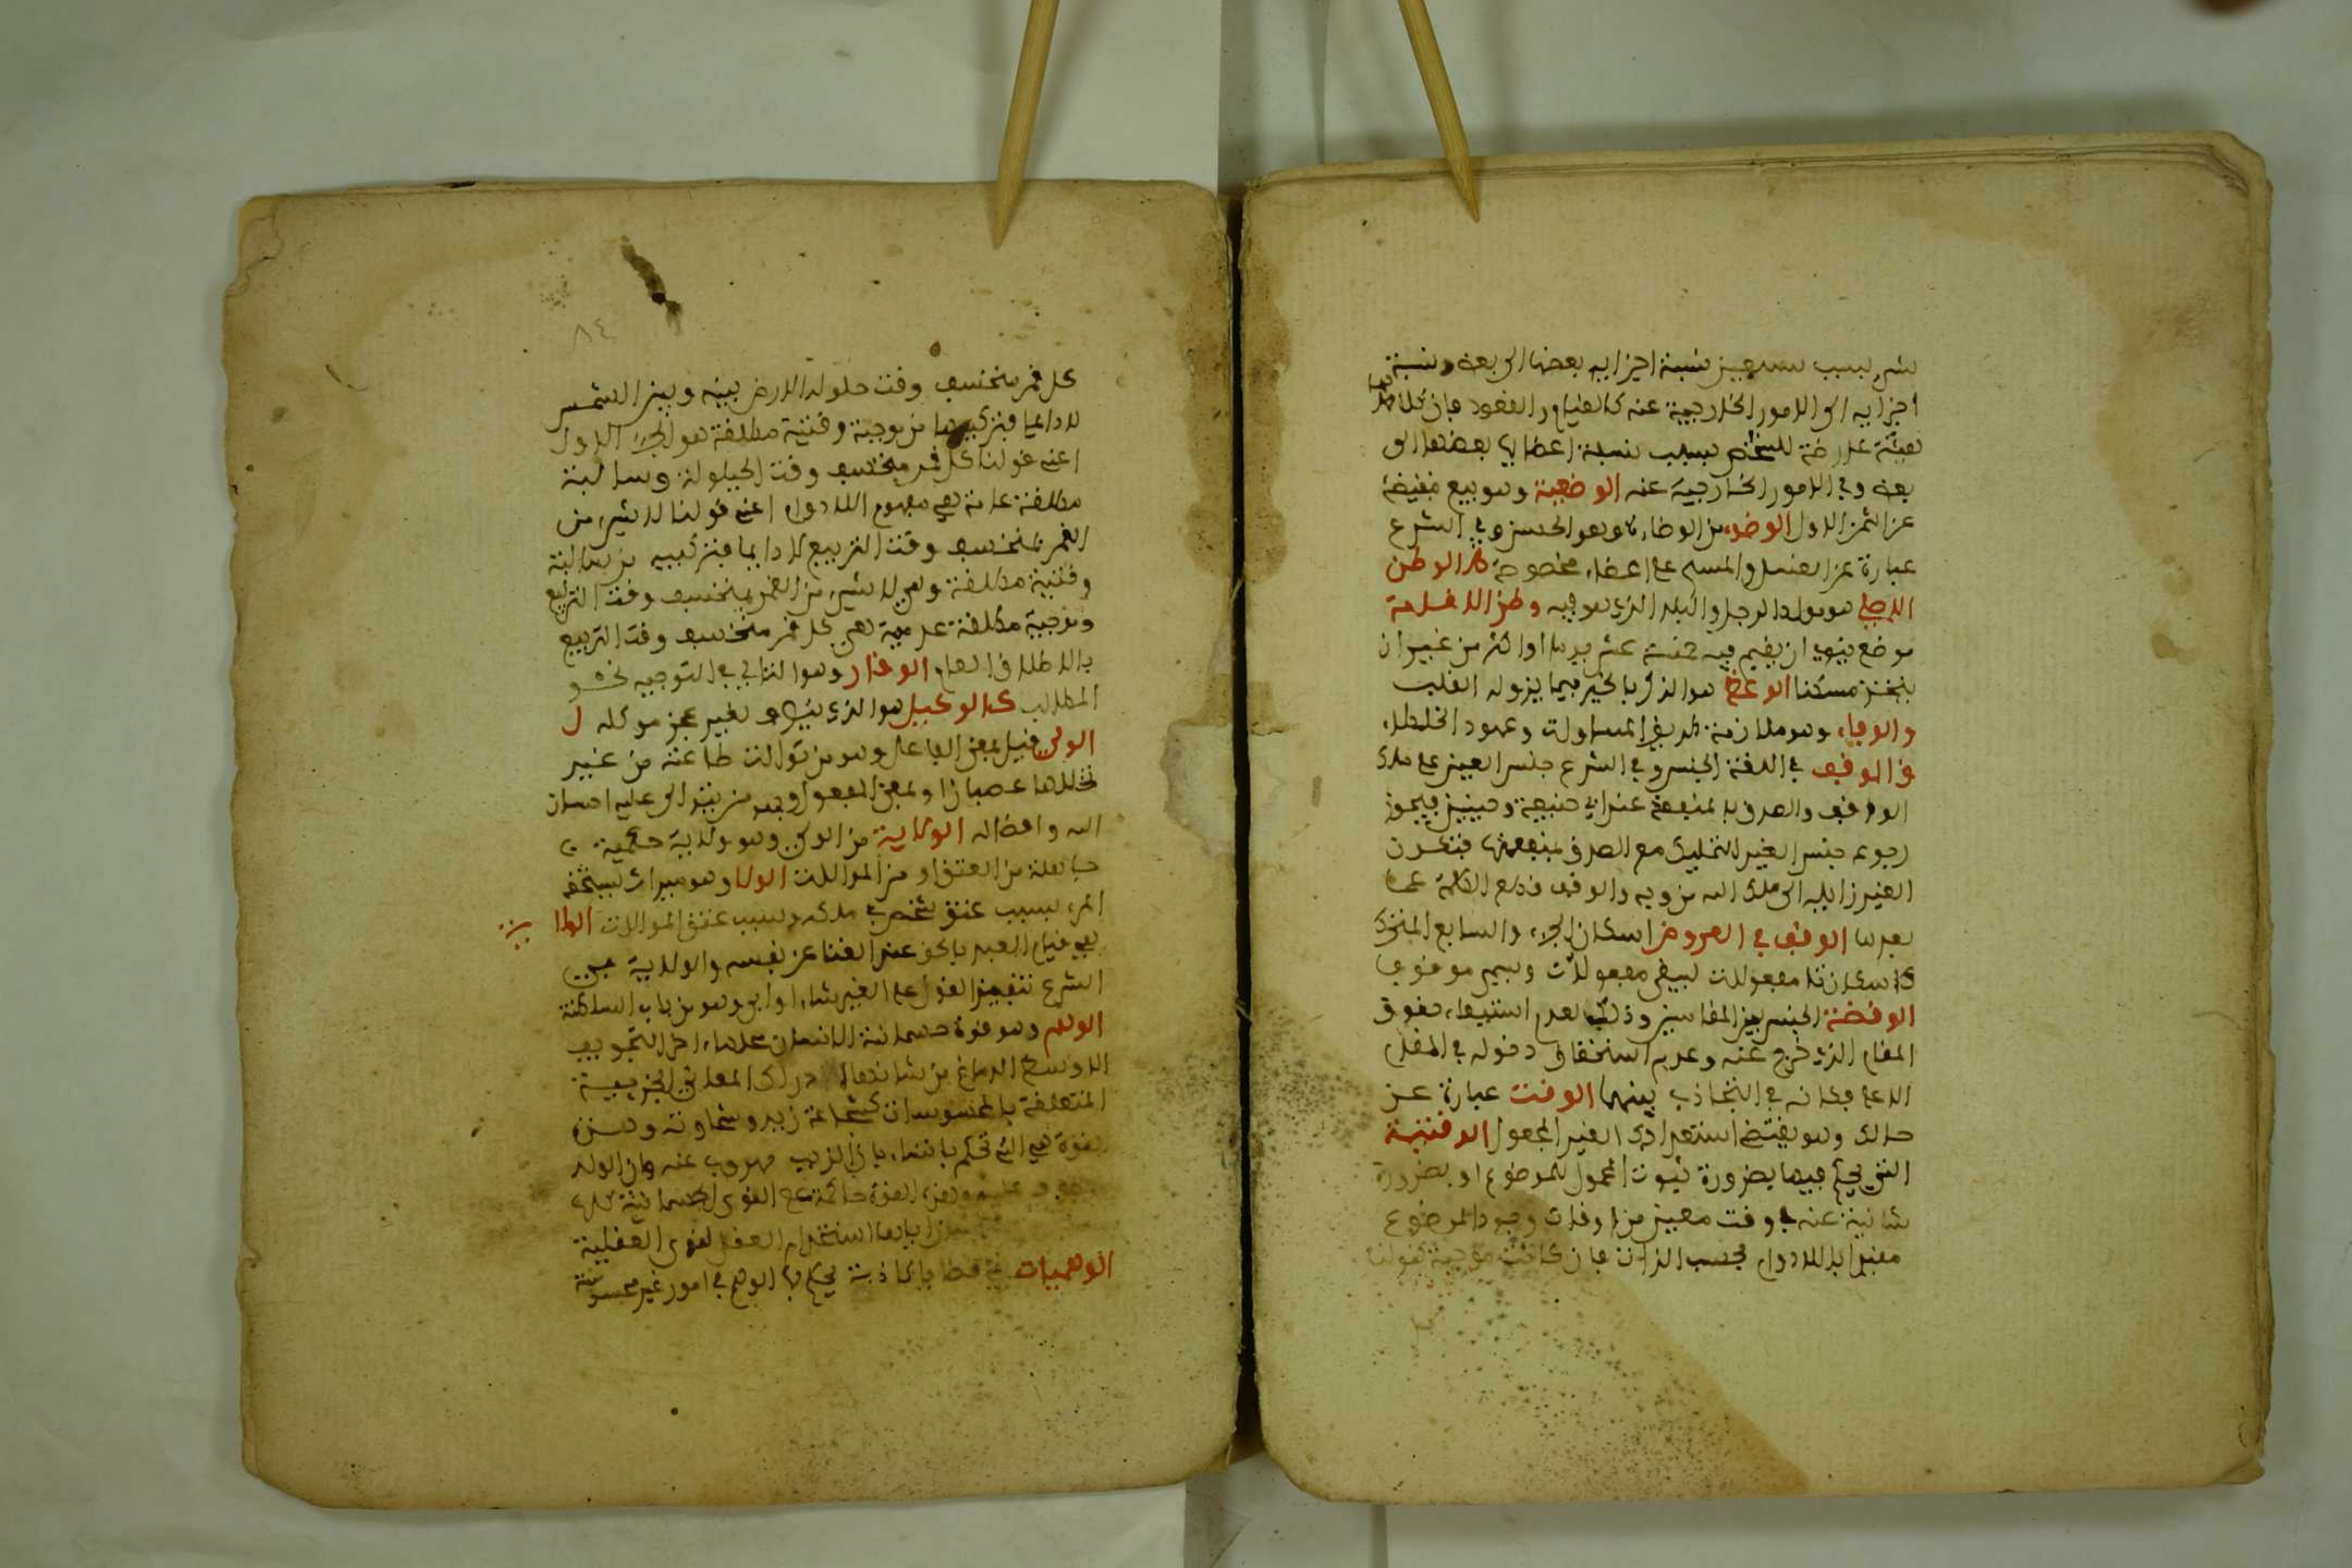 شيء بسبب نسبة اجزايه بعضها الى بعض ونسبة
اجزايه الى الامور الخارجية عنه كالقيام والقعود فان كلا منهما
هيئة عارضة للشخص بسبب نسبة اعضايه بعضها الى
بعض وفي الامور الخارجية عنه الوضيعة وهو بيع بنقيصة
عن الثمن الاول الوضوء من الوضاءة وهو الحسن وفي الشرع
عبارة عن الغسل والمسح على اعضاء مخصوصة الوطن
الاصلي هو مولد الرجل والبلد الذي هو فيه وطن الاقامة
موضع ينوي ان يقيم فيه خمسة عشر يوما او اكثر من غير ان
يتخذ مسكنا الوعظ هو التذكير بالخير فيما يرق له القلب
والوفاء وهو ملازمة طريق المساواة وعهود الخلطاء
الوقف في اللغة الحبس وفي الشرع حبس العين على ملك
الواقف والتصدق بالمنفعة عند ابي حنيفة وحينئذ فيجوز
رجوعه حبس العين للتمليك مع التصدق بمنفعتها فتكون
العين زايلة الى ملك الله من وجه والوقف قطع الكلمة عما
بعدها الوقف في العروض اسكان الحرف السابع المتحرك
كاسكان تا مفعولات ليبقى مفعولات ويسمى موقوفا
الوقفة الحبس بين المقامين وذلك لعدم استيفاء حقوق
المقام الذي خرج عنه وعدم استحقاق دخوله في المقام
الاعلى فكانه في التجاذب بينهما الوقت عبارة عن
حالك وهو يقتضي استعدادك الغير المجعول الوقتية
التي يحكم فيها بضرورة ثبوت المحمول للموضوع او بضرورة
سلبه عنه في وقت معين من اوقات وجود الموضوع
مقيدا باللادوام بحسب الذات فان كانت موجبة كقولنا
كل
٨٤
كل قمر منخسف وقت حلولة الارض بينه وبين الشمس
لا دايما فتركيبها من موجبة وقتية مطلقة هو الجزء الاول
اعني قولنا كل قمر منخسف وقت الحيلولة وسالبة
مطلقة عامة هي مفهوم اللادوام اعني قولنا لا شيء من
القمر بمنخسف وقت التربيع لا دايما فتركيبه من سالبة
وقتية مطلقة وهي لا شيء من القمر بمنخسف وقت التربيع
وموجبة مطلقة عامة هي كل قمر منخسف وقت التربيع
بالاطلاق العام الوقار وهو التاني في التوجيه نحو
المطالب الوكيل هو الذي يتصرف لغيره لعجز موكله
الولي فعيل بمعنى الفاعل وهو من توالت طاعته من غير
تخللها عصيان او بمعنى المفعول وهو من يتوالى عليه احسان
الله وافضاله الولاية من الولي وهو ولاية حكمية
حاصلة من العتق او من الموالات الولا وهو ميراث يستحقه
المرء بسبب عتق شخص في ملكه وبسبب عتق الموالات
هي قيام العبد بالحق عند الفنا عن نفسه والولاية في
الشرع تنفيذ القول على الغير شاء او ابى وهو من باب
الوهم وهو قوة جسمانية للانسان محلها اخر التجويف
الاوسط الدماغ من شانها ادراك المعاني الجزيية
المتعلقة بالمحسوسات كشجاعة زيد وسخاوته وهذه
القوة هي التي تحكم بها الشاة بان الذيب مهروب عنه وان الولد
وهذه القوة حاكمة على القوى الجسمانية كلها
اياها استخدام العقل القوى العقلية
الوهميات قضايا كاذبة يحكم بها الوهم في امور غير محسوسة